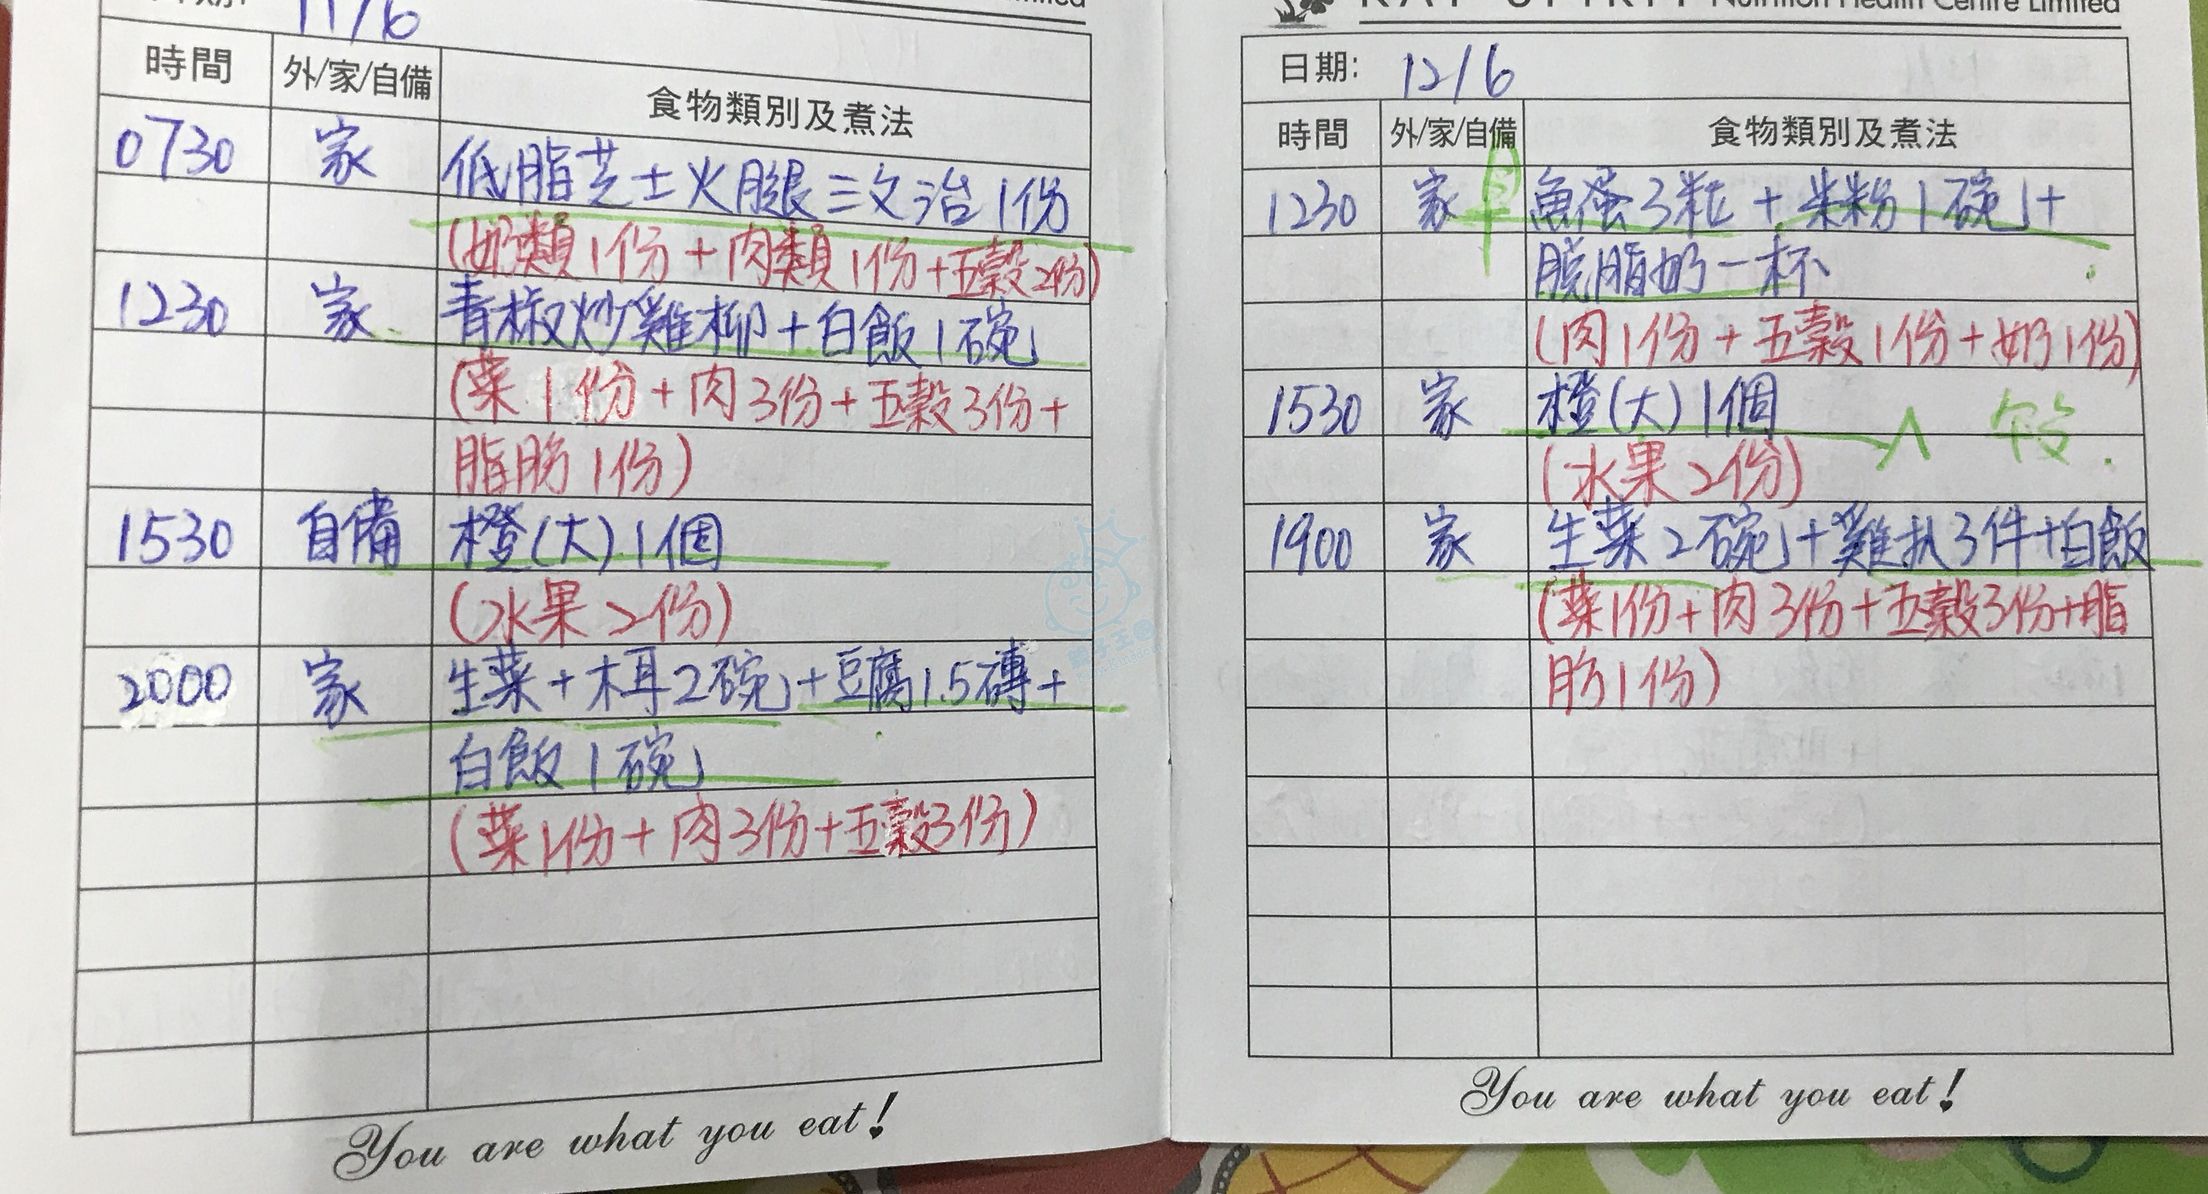 11/6
時間 外/家/自備 食物類別及煮法
0730 家 低脂芝士火腿三文治1份
(奶類1份+肉類1份+五穀2份)
1230 家 青椒炒雞柳+白飯1碗
(菜1份+肉3份+五穀3份+
脂肪1份)
1530 自備 橙(大)1個
(水果2份)
2000 家 生菜+木耳2碗+豆腐1.5磚+
白飯1碗
(菜1份+肉3份+五穀3份)
You are what you eat!
Nutrition Health Centre Limited
日期: 12/6
時間 外/家/自備 食物類別及煮法
1230 家 早 魚蛋3粒+米粉1碗+
脫脂奶一杯
(肉1份+五穀1份+奶1份)
1530 家 橙(大)1個
(水果2份)
1900 家 生菜2碗+雞扒3件+白飯
(菜1份+肉3份+五穀3份+脂
肪1份)
You are what you eat!